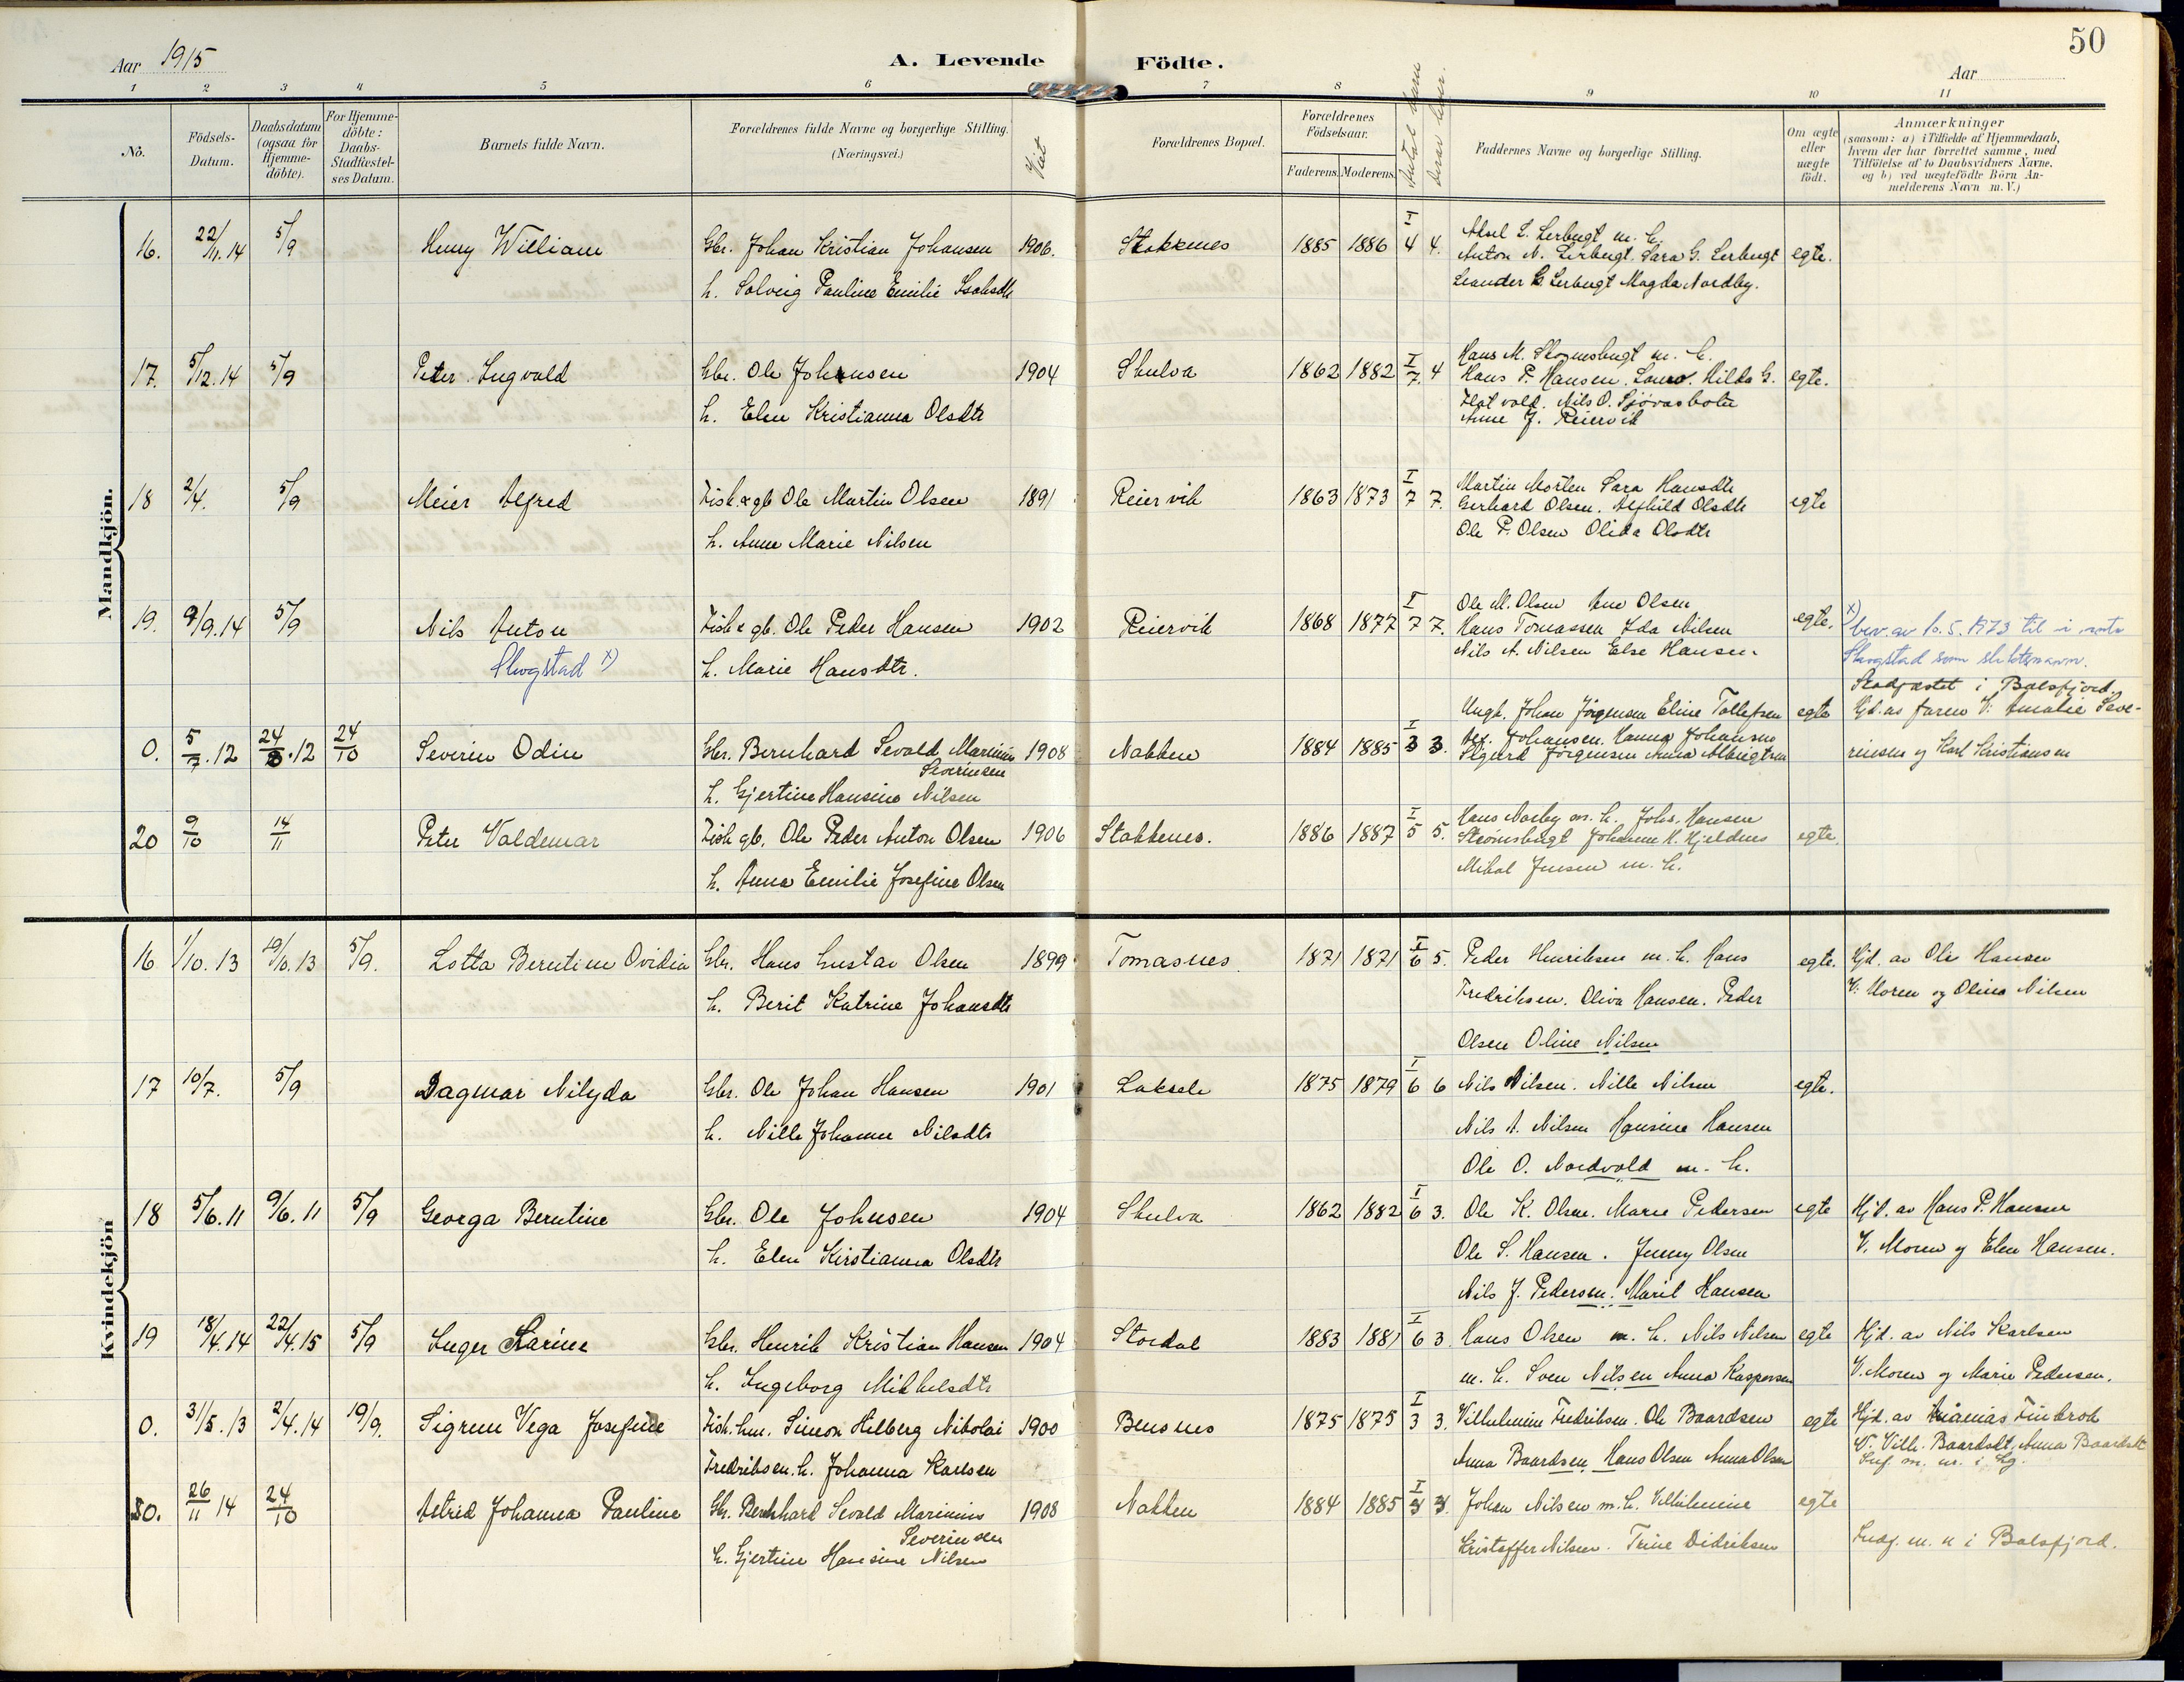 50
Aar 1915
A. Levende Fødte.
Aar
1 2 3 4 5 6 7 8 9 10 11
No.
Födsels-Datum.
Daabsdatum (ogsaa for Hjemme-döbte).
For Hjemme-döbte: Daabs-Stadfæstel-ses Datum.
Barnets fulde Navn.
Forældrenes fulde Navne og borgerlige Stilling.
(Næringsvei.)
Viet
Forældrenes Bopæl.
Forældrenes Födselsaar.
Faderens. Moderens.
Antal Barn
Derav lever.
Faddernes Navne og borgerlige Stilling.
Om ægte eller uægte födt.
Anmærkninger
(saasom: a) i Tilfælde af Hjemmedaab,
hvem der har forrettet samme, med
Tilföielse af to Daabsvidners Navne.
og b) ved uægtefödte Börn An-
melderens Navn m. V.)
Mandkjön.
16. 22/11.14 5/9 Henry William Gbr. Johan Kristian Johansen 1906. Stakkenes 1885 1886 I 4 4. Aksel L. Lerbugt m. h.
Anton N. Lerbugt. Sara G. Lerbugt egte.
h. Solveig Pauline Emilie Isaksdtr Leander G. Lerbugt Magda Nordby.
17. 5/12.14 5/9 Peter Ingvald Gbr. Ole Johnsen 1904 Skulva 1862 1882 I 7. 4 Hans M. Strømsbugt m. h.
Hans P. Hansen. Hilda G. egte.
h. Elen Kristianna Olsdtr Nils O. Sjövasbotn
Anne J. Reiervik
18 2/4. 5/9 Meier Alfred Fisk. & gb Ole Martin Olsen 1891 Reiervik 1863 1873 I 7 7. Martin Morten Sara Hansdtr
Gerhard Olsen. Alfhild Olsdtr egte
h. Anne Marie Nilsen Ole P. Olsen Olida Olsdtr
19. 9/9.14 5/9 Nils Anton Fisk & gb. Ole Peder Hansen 1902 Reiervik 1868 1877 I 7 7. Ole M. Olsen Ane Olsen
Hans Tomassen Ida Nilsen egte.
Skogstad x) h. Marie Hansdtr. Nils A. Nilsen Else Hansen
x) bev. av 10.5.1973 til
Skogstad som slektsnavn.
0. 5/7.12 24/8.12 24/10 Severin Odin Gbr. Bernhard Sevald Marinius Severinsen 1908 Nakken 1884 1885 I 3 3. Ungk. Johan Jörgensen Eline Tollefsen egte
Johansen. Hanna Johansen
Sigurd Jörgensen Anna Albrigtsen
h. Gjertine Hansine Nilsen
Stadfæstet i Balsfjord.
Hjd. av faren V: Amalie Seve-
rinsen og Karl Kristiansen
20 9/10 14/11 Peter Valdemar Fisk gb. Ole Peder Anton Olsen 1906 Stakkenes. 1886 1887 I 5 5. Hans Norby m. h. Johs. Hansen
Strømsbugt Johanne H. Hjeldnes egte.
h. Anna Emilie Josefine Olsen Mikal Jensen m. h.
Kvindekjön
16 1/10.13 19/10.13 5/9. Lotta Berntine Ovidia Gbr. Hans Gustav Olsen 1899 Tomasnes. 1871 1871 I 6 5. Peder Henriksen m. h. Hans egte. Hjd. av Ole Hansen
h. Berit Katrine Johansdtr Fredriksen. Oliva Hansen. Peder V: Moren og Oline Nilsen
Olsen Oline Nilsen
17 10/7. 5/9 Dagmar Nilyda Gbr. Ole Johan Hansen 1901 Lakselv 1875 1879 I 6 6 Nils Nilsen. Nille Nilsen egte.
h. Nille Johanne Nilsdtr Nils A. Nilsen Hansine Hansen
Ole O. Nordvold m. h.
18 5/6.11 9/6.11 5/9 Georga Berntine Gbr. Ole Johnsen 1904 Skulva 1862 1882 I 6 3. Ole K. Olsen. Marie Pedersen egte Hjd. av Hans P. Hansen
h. Elen Kirstianna Olsdtr Ole S. Hansen. Jenny Olsen V. Moren og Elen Hansen.
Nils J. Pedersen. Marit Hansen
19 18/4.14 22/4.15 5/9 Inger Karine Gbr. Henrik Kristian Hansen 1904 Stordal 1883 1881 I 6 3. Hans Olsen m. h. Nils Nilsen egte Hjd. av Nils Karlsen
h. Ingeborg Mikkelsdtr m. h. Sven Nilsen Anna Kaspersen V. Moren og Marie Pedersen.
0. 31/5.13 2/4.14 19/9. Sigrun Vega Josefine Fisk. hm. Simon Hilberg Nikolai 1900 Bensnes 1875 1875 I 3 3. Vilhelmine Fredriksen. Ole Baardsen egte Hjd. av Ananias Finbrok
Fredriksen. h. Johanna Karlsen Anna Baardsen Hans Olsen Anna Olsen V: Vilh. Baardsdt. Anna Baardsdt
Inf. m. nr. i Lg.
20. 26/11 14 24/10 Astrid Johanna Pauline Gbr. Bernhard Sevald Marinius Severinsen 1908 Nakken 1884 1885 I 3 3. Johan Nilsen m. h. Vilhelmine egte
h. Gjertine Hansine Nilsen Kristoffer Nilsen. Trine Didriksen Indf. m. n i Balsfjord.